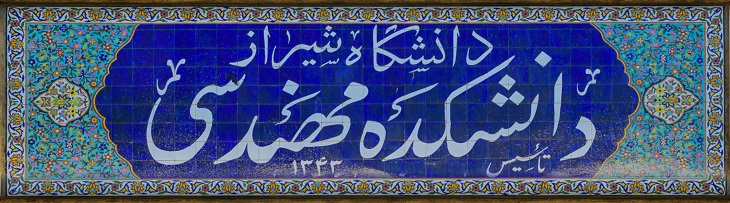 دانشگاه شیراز
دانشکده مهندسی
تاسیس ۱۳۴۳